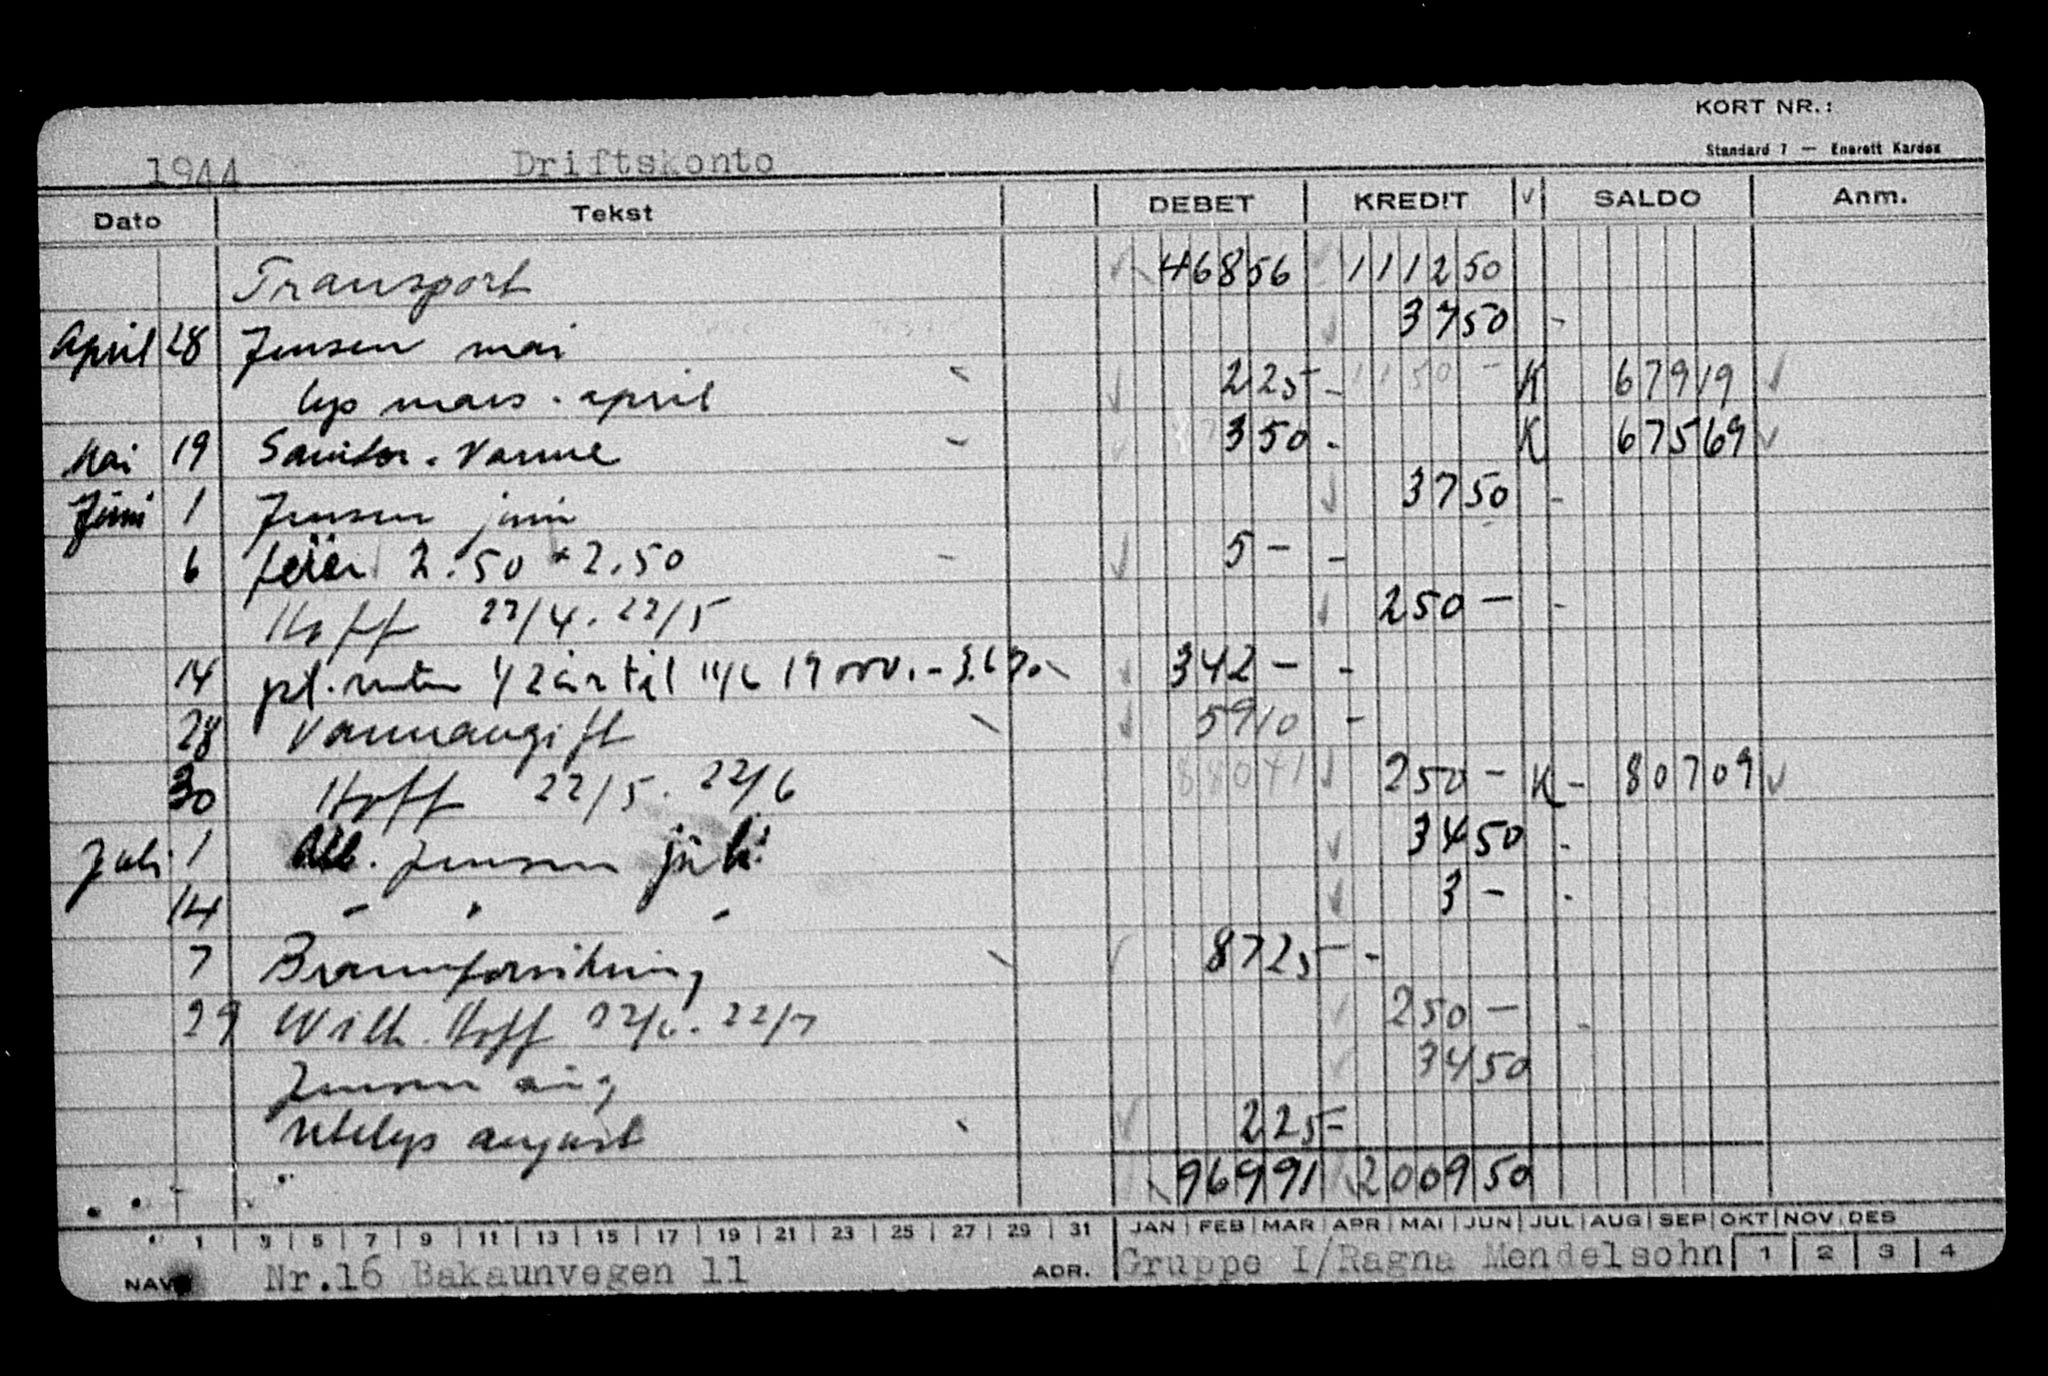 KORT NR.:
Standard 7 — Enerett Kardex
1944 Driftskonto
Dato Tekst DEBET KREDIT V SALDO Anm.
Transport 46856 111250
April 28 Jensen mai 3750 -
lys mars - april 225 - 1150 - K 67919
Mai 19 Sanitær. Varme 350 - K 67569
Juni 1 Jensen juni 3750 -
6 feier 2.50 + 2.50 5 - -
Hoff 22/4 - 22/5 250 - -
14 pt. renter 1/2 år til 11/6 342 - -
28 Vannavgift 5910 -
30 Hoff 22/5 - 22/6 88041 250 - K - 80709
Juli 1 Alb. Jensen juli 3450 -
14 - " - 3 - -
7 Brannforsikring 8725 -
29 Wilh. Hoff 22/6 - 22/7 250 - -
Jensen aug 3450
Utelys august 225
96991 200950
1 3 5 7 9 11 13 15 17 19 21 23 25 27 29 31 JAN FEB MAR APR MAI JUN JUL AUG SEP OKT NOV DES
NAVN Nr.16 Bakaunvegen 11 ADR. Gruppe I/Ragna Mendelsohn 1 2 3 4